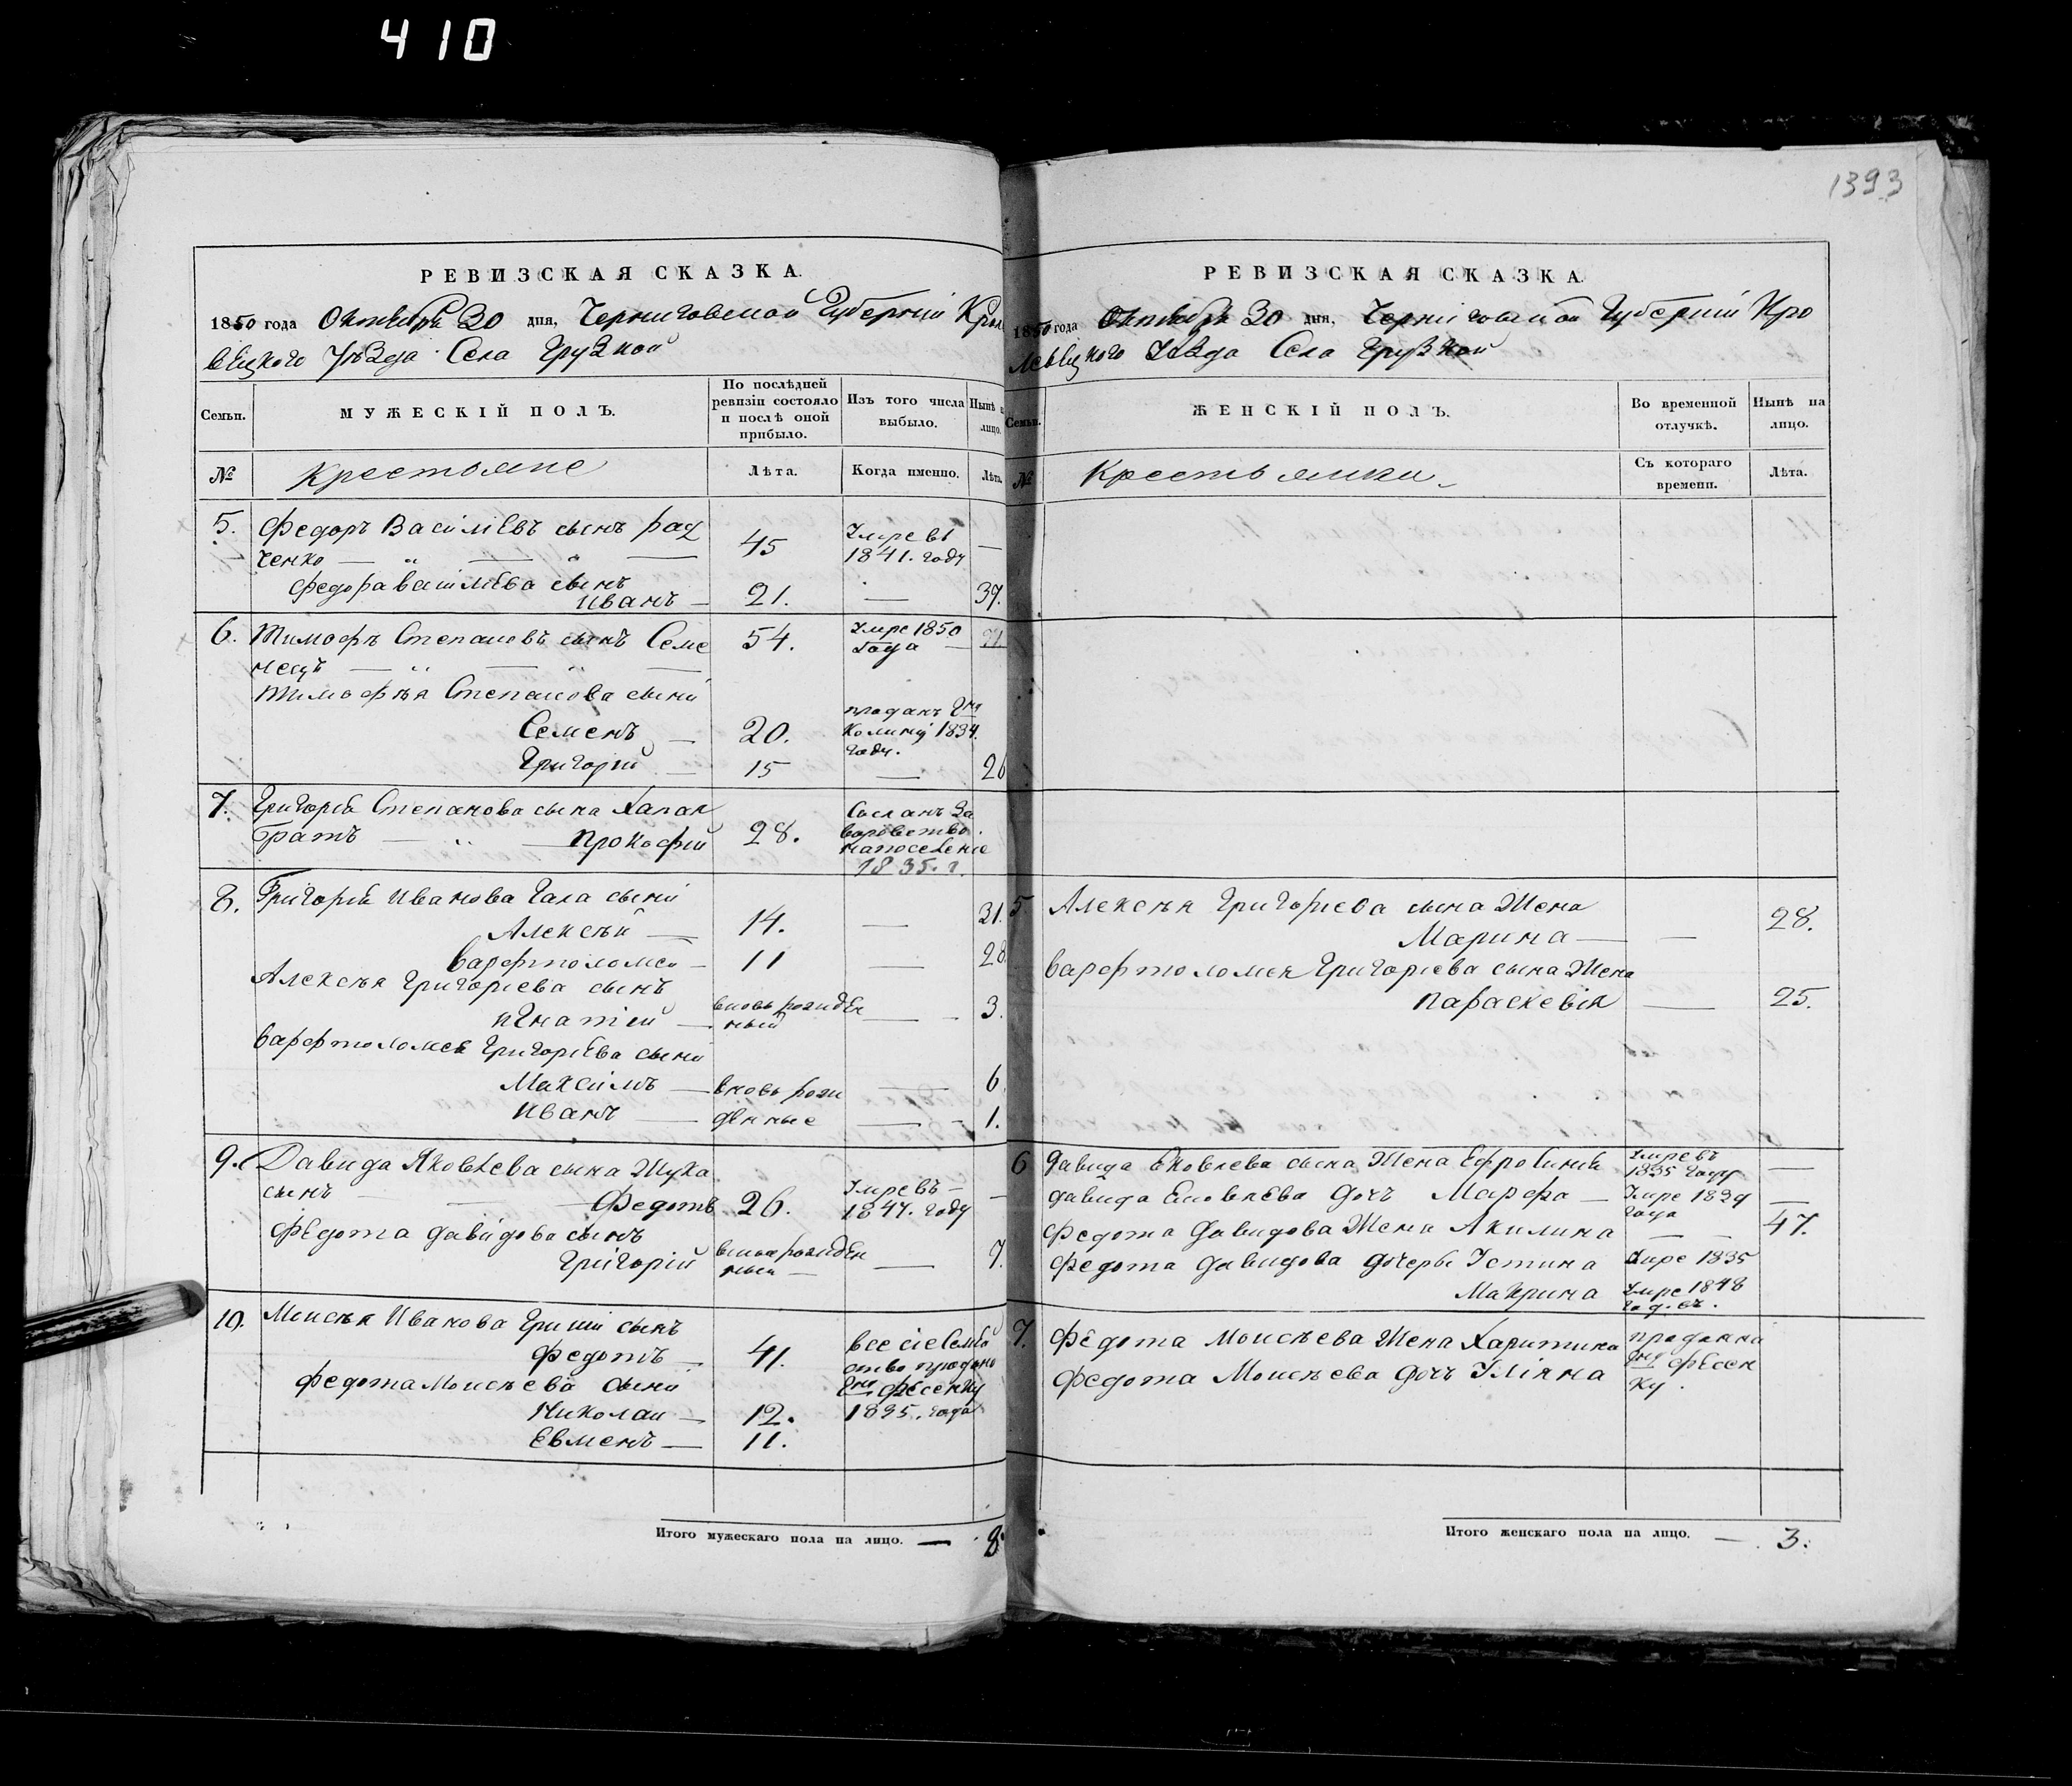 410
РЕВИЗСКАЯ СКАЗКА.
1850 года Октября 30 дня, Черниговской Губерніи Крол
вецкого Уѣзда Села Грузкой
Семьи.
МУЖЕСКІЙ ПОЛЪ.
По послѣдней ревизіи состояло и послѣ оной прибыло.
Изъ того числа выбыло.
Нынѣ н лицо.
№ Крестьяне Лѣта. Когда именно. Лѣта.
5. Федоръ Васильевъ сынъ Рад 45 Умре въ —
ченко — „ — „ — 1841. году
Федора Васильева сынъ
Иванъ — 21. — 37.
6. Тимофѣ Степановъ сынъ Семе 54. Умре 1850
нецъ — „ — „ — Года —
Тимофѣя Степанова сыни
Семенъ — 20. проданъ Гну
1834.
году.
Григорій — 15 — 26
7. Григорія Степанова сына Хапак
братъ — „ — Прокофій 28. Сосланъ за
воровство
на поселение
1835. г.
8. Григорія Иванова Гала сыни
Алексѣй — 14. — 31.
Варфтоломей — 11 — 28.
Алексѣя Григорієва сынъ
Игнатій — вновь рожден
ный — 3.
Варфтоломея Григорієва сыни
Максимъ — вновь рож — 6.
Иванъ — денные — 1.
9. Давида Яковлева сына Жука
сынъ — Федотъ 26. Умре въ —
1847. году
Федота Давидова сынъ
Григорій вновь рожден
ный — — 7.
10. Моисѣя Иванова Гриши сынъ
Федотъ — 41. Все сіе Семей
ство продано
Федота Моисѣева сыни Гну Фесенку
Николай — 12. 1835. года
Евменъ — 11.
Итого мужескаго пола на лицо. — 8.
1393
РЕВИЗСКАЯ СКАЗКА.
1850 года Октября 30 дня, Черніговской Губерніи Кро
левецкого Уѣзда Села Грузкой
Семьи.
ЖЕНСКІЙ ПОЛЪ.
Во временной отлучкѣ.
Нынѣ на лицо.
№ Крестьянки Съ котораго времени. Лѣта.
5. Алексѣя Григорієва сына Жена
Марина — — 28.
Варфтоломея Григорієва сына Жена
Параскевія — 25.
6 Давида Яковлева сына Жена Ефросинія Умре въ —
1835 году
Давида Яковлева дочъ Марфа — Умре 1839 —
года
Федота Давидова Жена Акилина — — 47.
Федота Давидова дочеры Устина Умре 1835
Макрина Умре 1848
7. Федота Моисѣева Жена Харитина проданна
Федота Моисѣева дочъ Уліяна Гну Фесен
ку.
Итого женскаго пола на лицо. — 3.